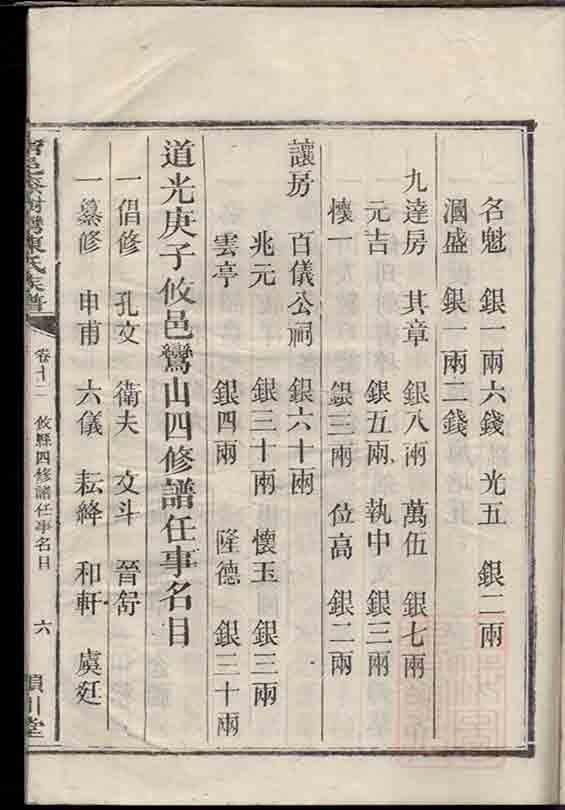 名魁 銀一兩六錢 光五 銀二兩
涸盛 銀一兩二錢
九達房 其章 銀八兩 萬伍 銀七兩
元吉 銀五兩 執中 銀三兩
懷一 銀三兩 位高 銀二兩
讓房 百儀公祠 銀六十兩
兆元 銀三十兩 懷玉 銀三兩
雲亭 銀四兩 隆德 銀三十兩
道光庚子攸邑鸞山四修譜任事名目
一倡修 孔文 衛夫 文斗 晉舒
一纂修 申甫 六儀 耘絳 和軒 虞廷
氏族譜 卷十二 攸縣四修譜任事名目 六 川堂